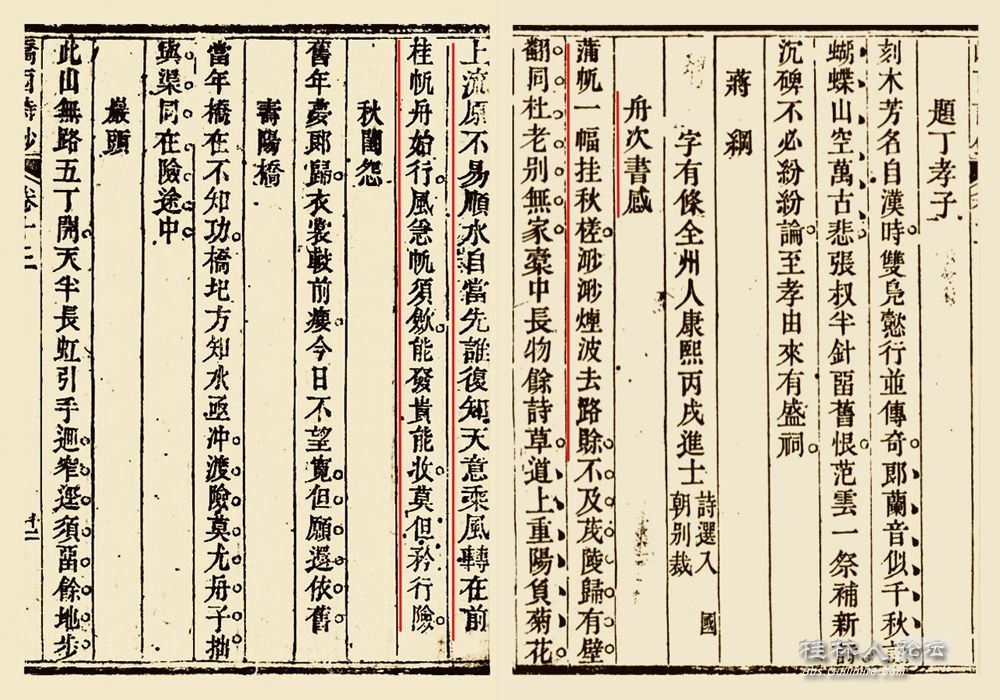 題丁孝子
刻木芳名自漢時雙鳧懿行並傳奇郎蘭音似千秋
蝴蝶山空萬古悲張叔半針留舊恨范雲一祭補新
沉碑不必紛紛論至孝由來有盛祠
蔣綱
字有條全州人康熙丙戌進士詩選入國朝別裁
舟次書感
蒲帆一幅挂秋槎渺渺煙波去路賖不及茂陵歸有壁
翻同杜老別無家橐中長物餘詩草道上重陽負菊花
上流原不易順水自當先誰復知天意乘風轉在前
桂帆舟始行風急帆須歛能發貴能收莫但矜行險
秋閨怨
舊年夢郎歸衣裳較前瘦今日不望寬但願還依舊
壽陽橋
當年橋在不知功橋圯方知水亟冲渡險莫尤舟子拙
與渠同在險途中
巖頭
此山無路五丁開天半長虹引手廻窄逕須留餘地步
嶠西詩鈔 卷十二 十二
桂林人论坛